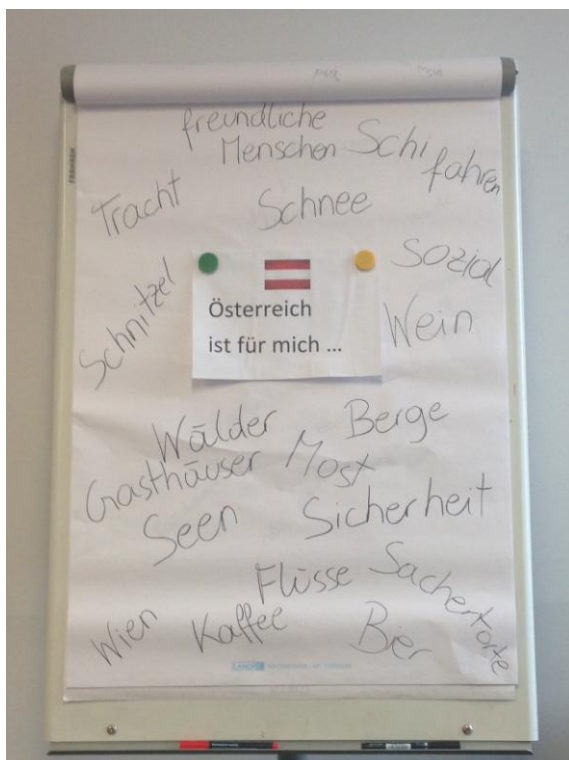 freundliche
Menschen
Schi
fahren
Tracht
Schnee
Sozial
Schnitzel
Österreich
ist für mich ...
Wein
Wälder
Berge
Gasthäuser
Most
Seen
Sicherheit
Flüsse
Sachertorte
Wien
Kaffee
Bier